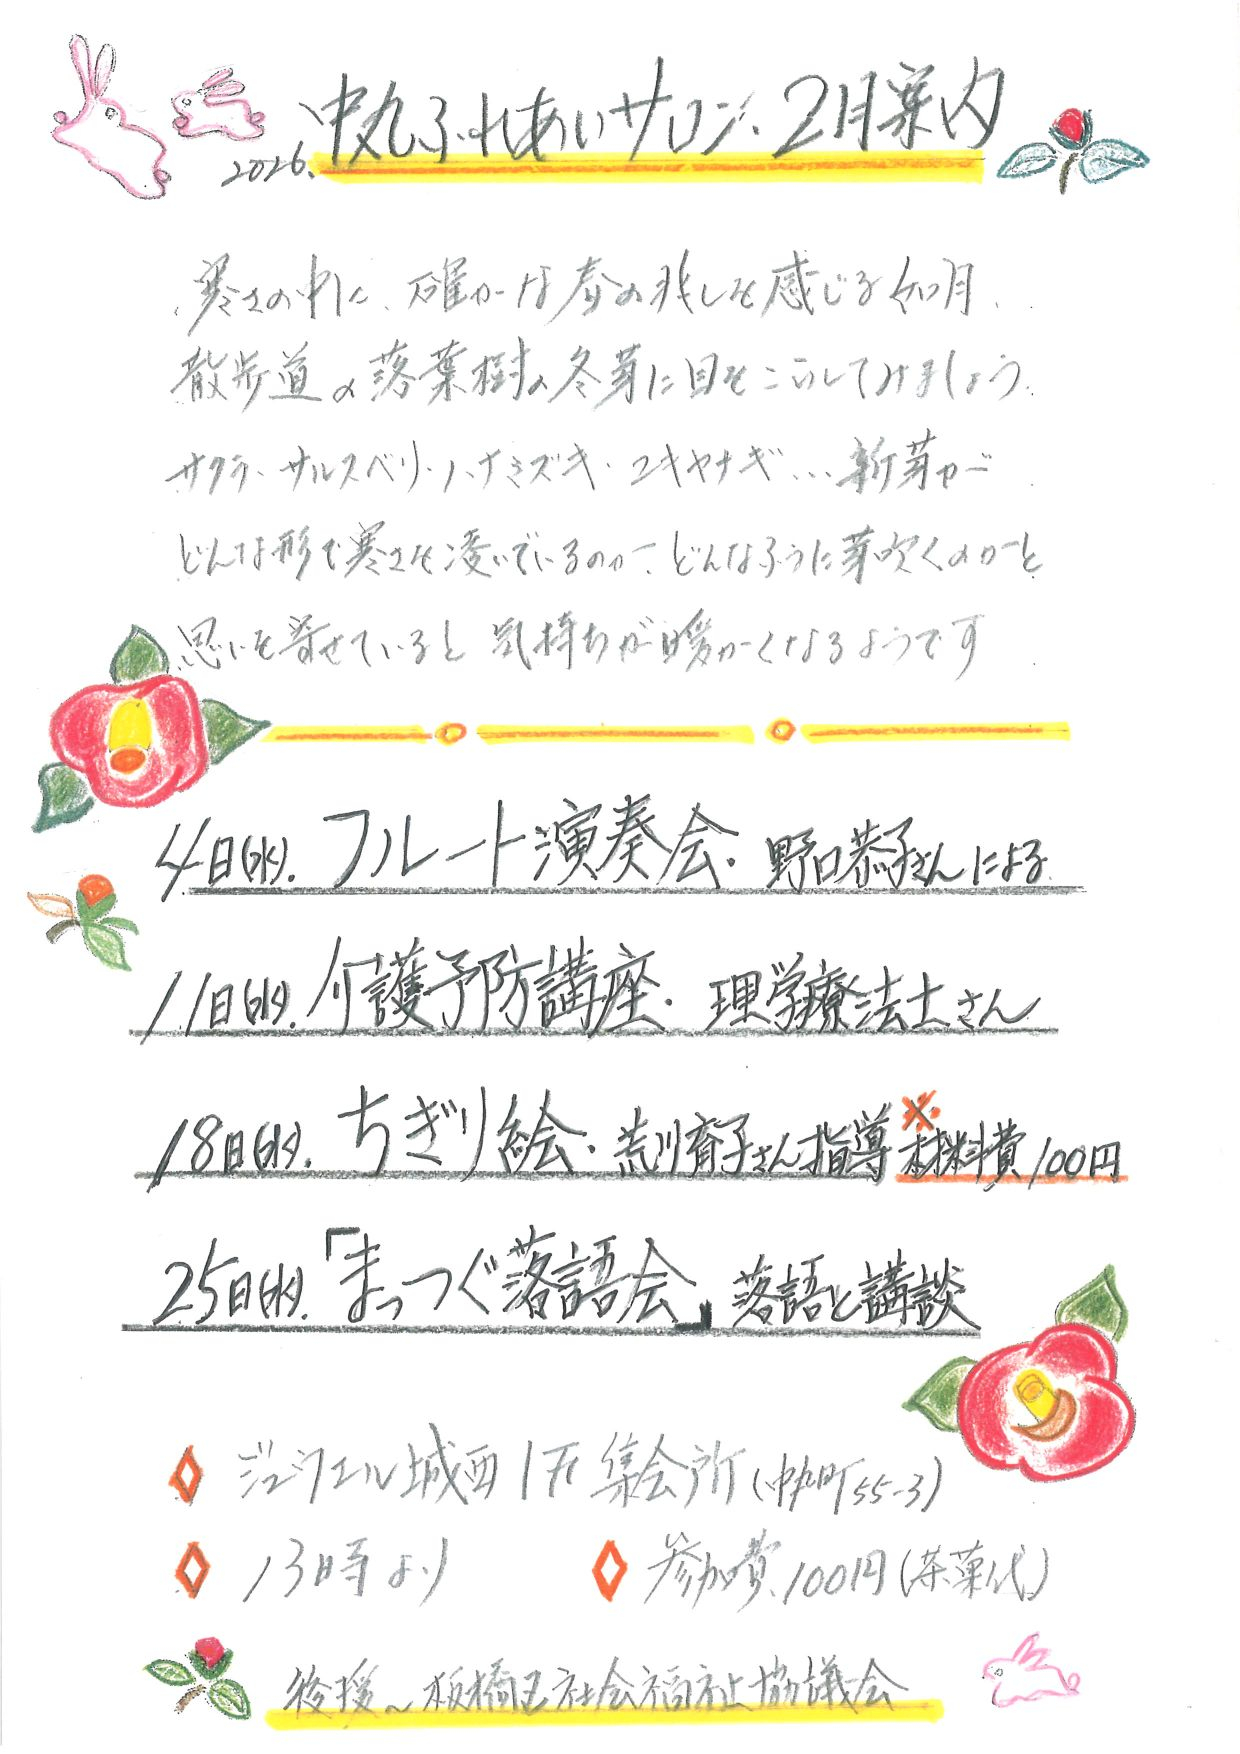 2026. 中丸ふれあいサロン、2月案内
寒さの中に、確かな春の兆しを感じる如月、
散歩道の落葉樹の冬芽に目をこらしてみましょう。
サクラ・サルスベリ・ハナミズキ・ユキヤナギ…新芽が
どんな形で寒さを凌いでいるのか、どんなふうに芽吹くのかと
思いを寄せていると 気持ちが暖かくなるようです
4日(水). フルート演奏会・野口恭子さんによる
11日(水). 介護予防講座・理学療法士さん
18日(水). ちぎり絵・荒川育子さん指導 ※材料費100円
25日(水).「まっつぐ落語会」落語と講談
ジェンティエル城西1F集会所(中丸町55-3)
13時より
参加費、100円(茶菓代)
後援〜板橋区社会福祉協議会